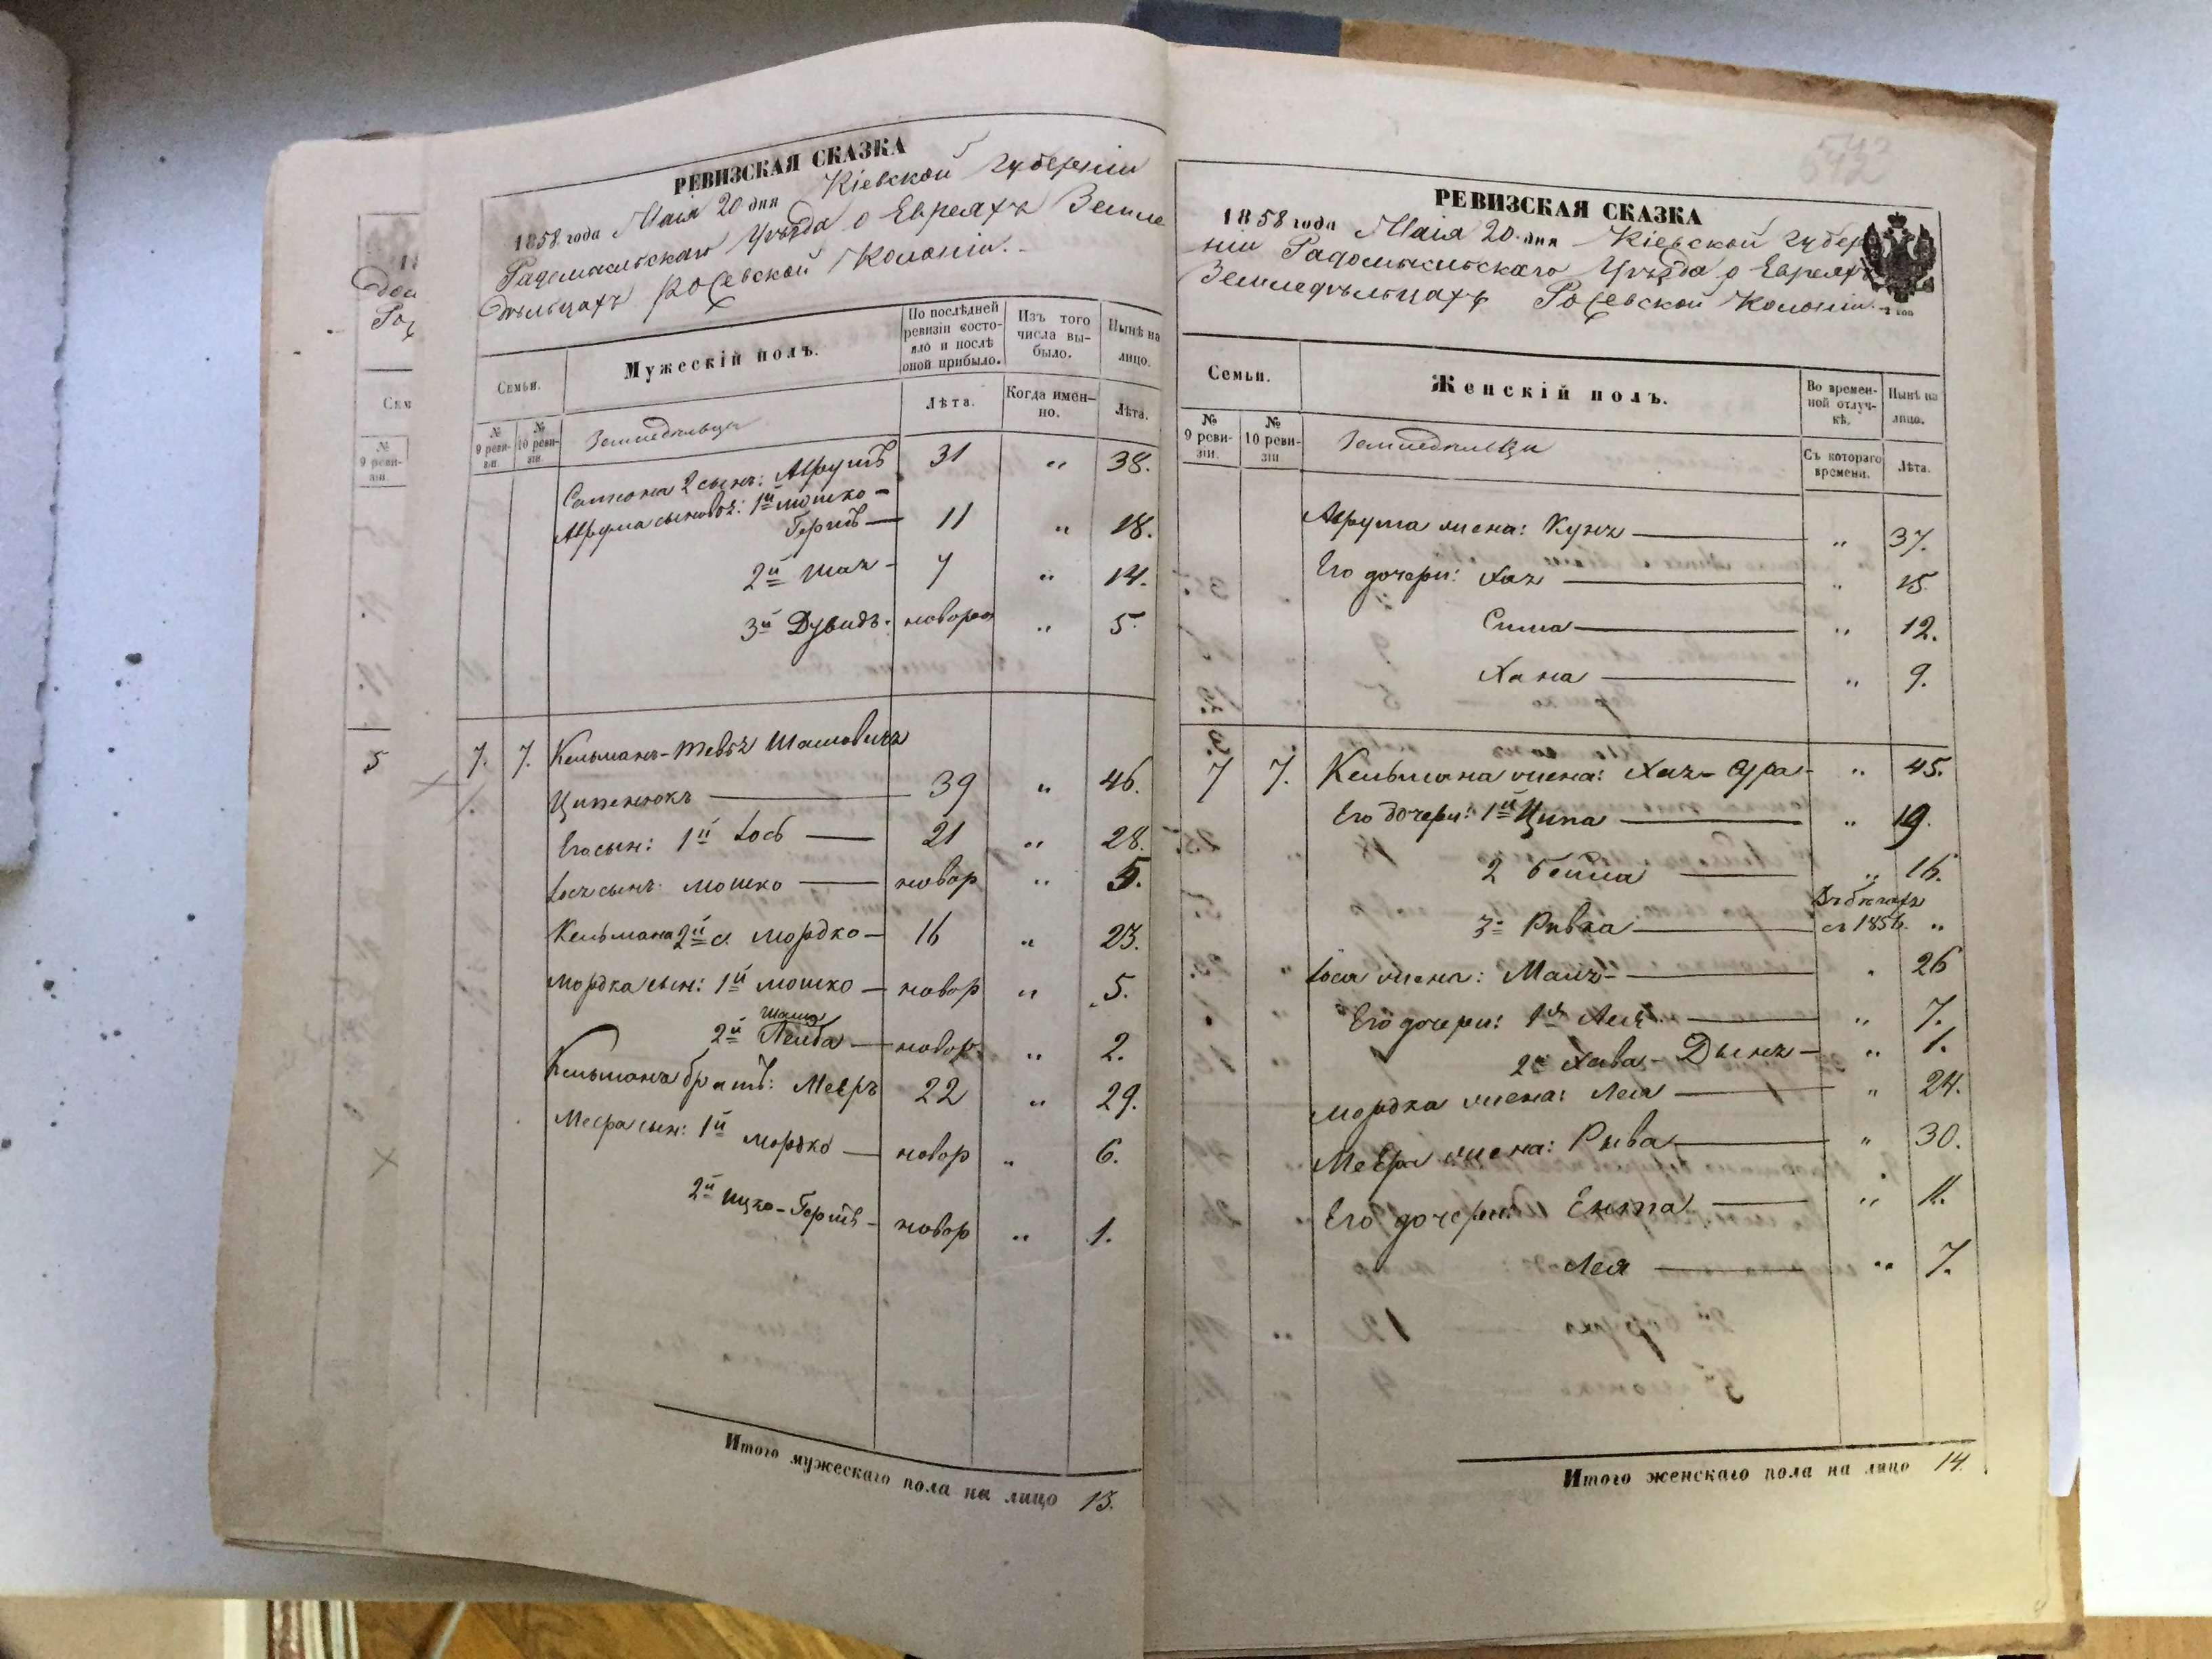 РЕВИЗСКАЯ СКАЗКА
1858 года Маія 20 дня Кіевской губерніи
Радомысльскаго Уѣзда о Евреяхъ Земле
дѣльцахъ Колоніи.
Семьи.
Мужескій полъ.
По послѣдней ревизіи состояло и послѣ оной прибыло.
Изъ того числа выбыло.
Нынѣ на лицо.
№ 9 ревизіи.
№ 10 ревизіи.
Земледѣльцы
Лѣта.
Когда именно.
Лѣта.
2 сынъ: Аврумъ 31 " 38.
Аврума сыновья: 1й Мошко-
Гершъ — 11 " 18.
2й 7 " 14.
3й Дувидъ. новоро " 5.
7. 7. Кельманъ-Тевья
Ципенюкъ — 39 " 46.
Его сын: 1й Іось — 21 " 28.
сынъ Мошко — новор " 5.
Кельмана 2й с. Мордко — 16 " 23.
Мордка сын: 1й Мошко — новор " 5.
2й Лейба — новор. " 2.
Кельмана братъ: Мееръ 22 " 29.
Меера сын: 1й Мордко — новор " 6.
2й Ицко-Гершъ — новор " 1.
Итого мужескаго пола на лицо 13.
5
542
РЕВИЗСКАЯ СКАЗКА
1858 года Маія 20 дня Кіевской губер
ніи Радомысльскаго Уѣзда о Евреяхъ
Земледѣльцахъ Колоніи.
Семьи.
Женскій полъ.
Во временной отлучкѣ.
Нынѣ на лицо.
№ 9 ревизіи.
№ 10 ревизіи.
Земледѣльцы
Съ котораго времени.
Лѣта.
Аврума жена: — " 37.
Его дочери: Хая — " 15
Сима — " 12.
Хана — " 9.
7 7. Кельмана жена: Хая-Сура - " 45.
Его дочери: 1я Ципа — " 19.
2 Бейла — " 16.
3я Ривка — Въ бѣгахъ
съ 1856. "
жена: — " 26
Его дочери: 1я — " 7.
2я Хава- — " 1.
Мордка жена: Лея — " 24.
Меера жена: Рива — " 30.
Его дочери: Ента — " 11.
Лея — " 7.
Итого женскаго пола на лицо 14.